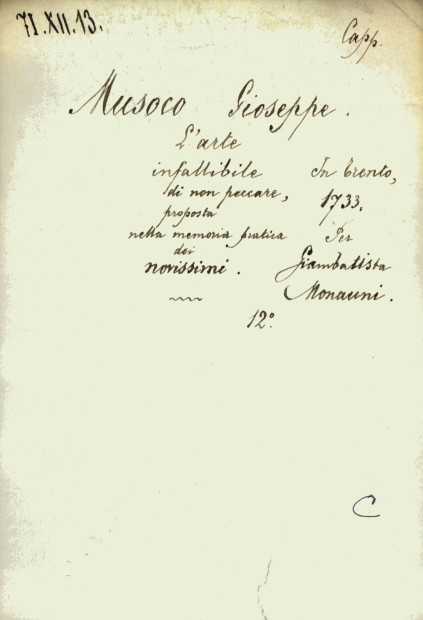 71.XII.13.
Capp.
Musoco Gioseppe.
L'arte
infallibile
di non peccare,
proposta
nella memoria pratica
dei
novissimi.
In Trento,
1733.
Per
Giambattista
Monauni.
12º.
C